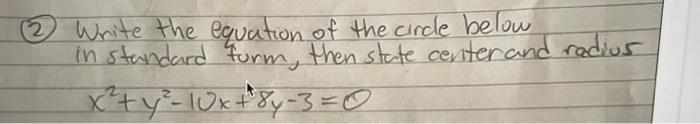 ② Write the equation of the circle below
in standard form, then state center and radius
x²+y²-10x+8y-3=0